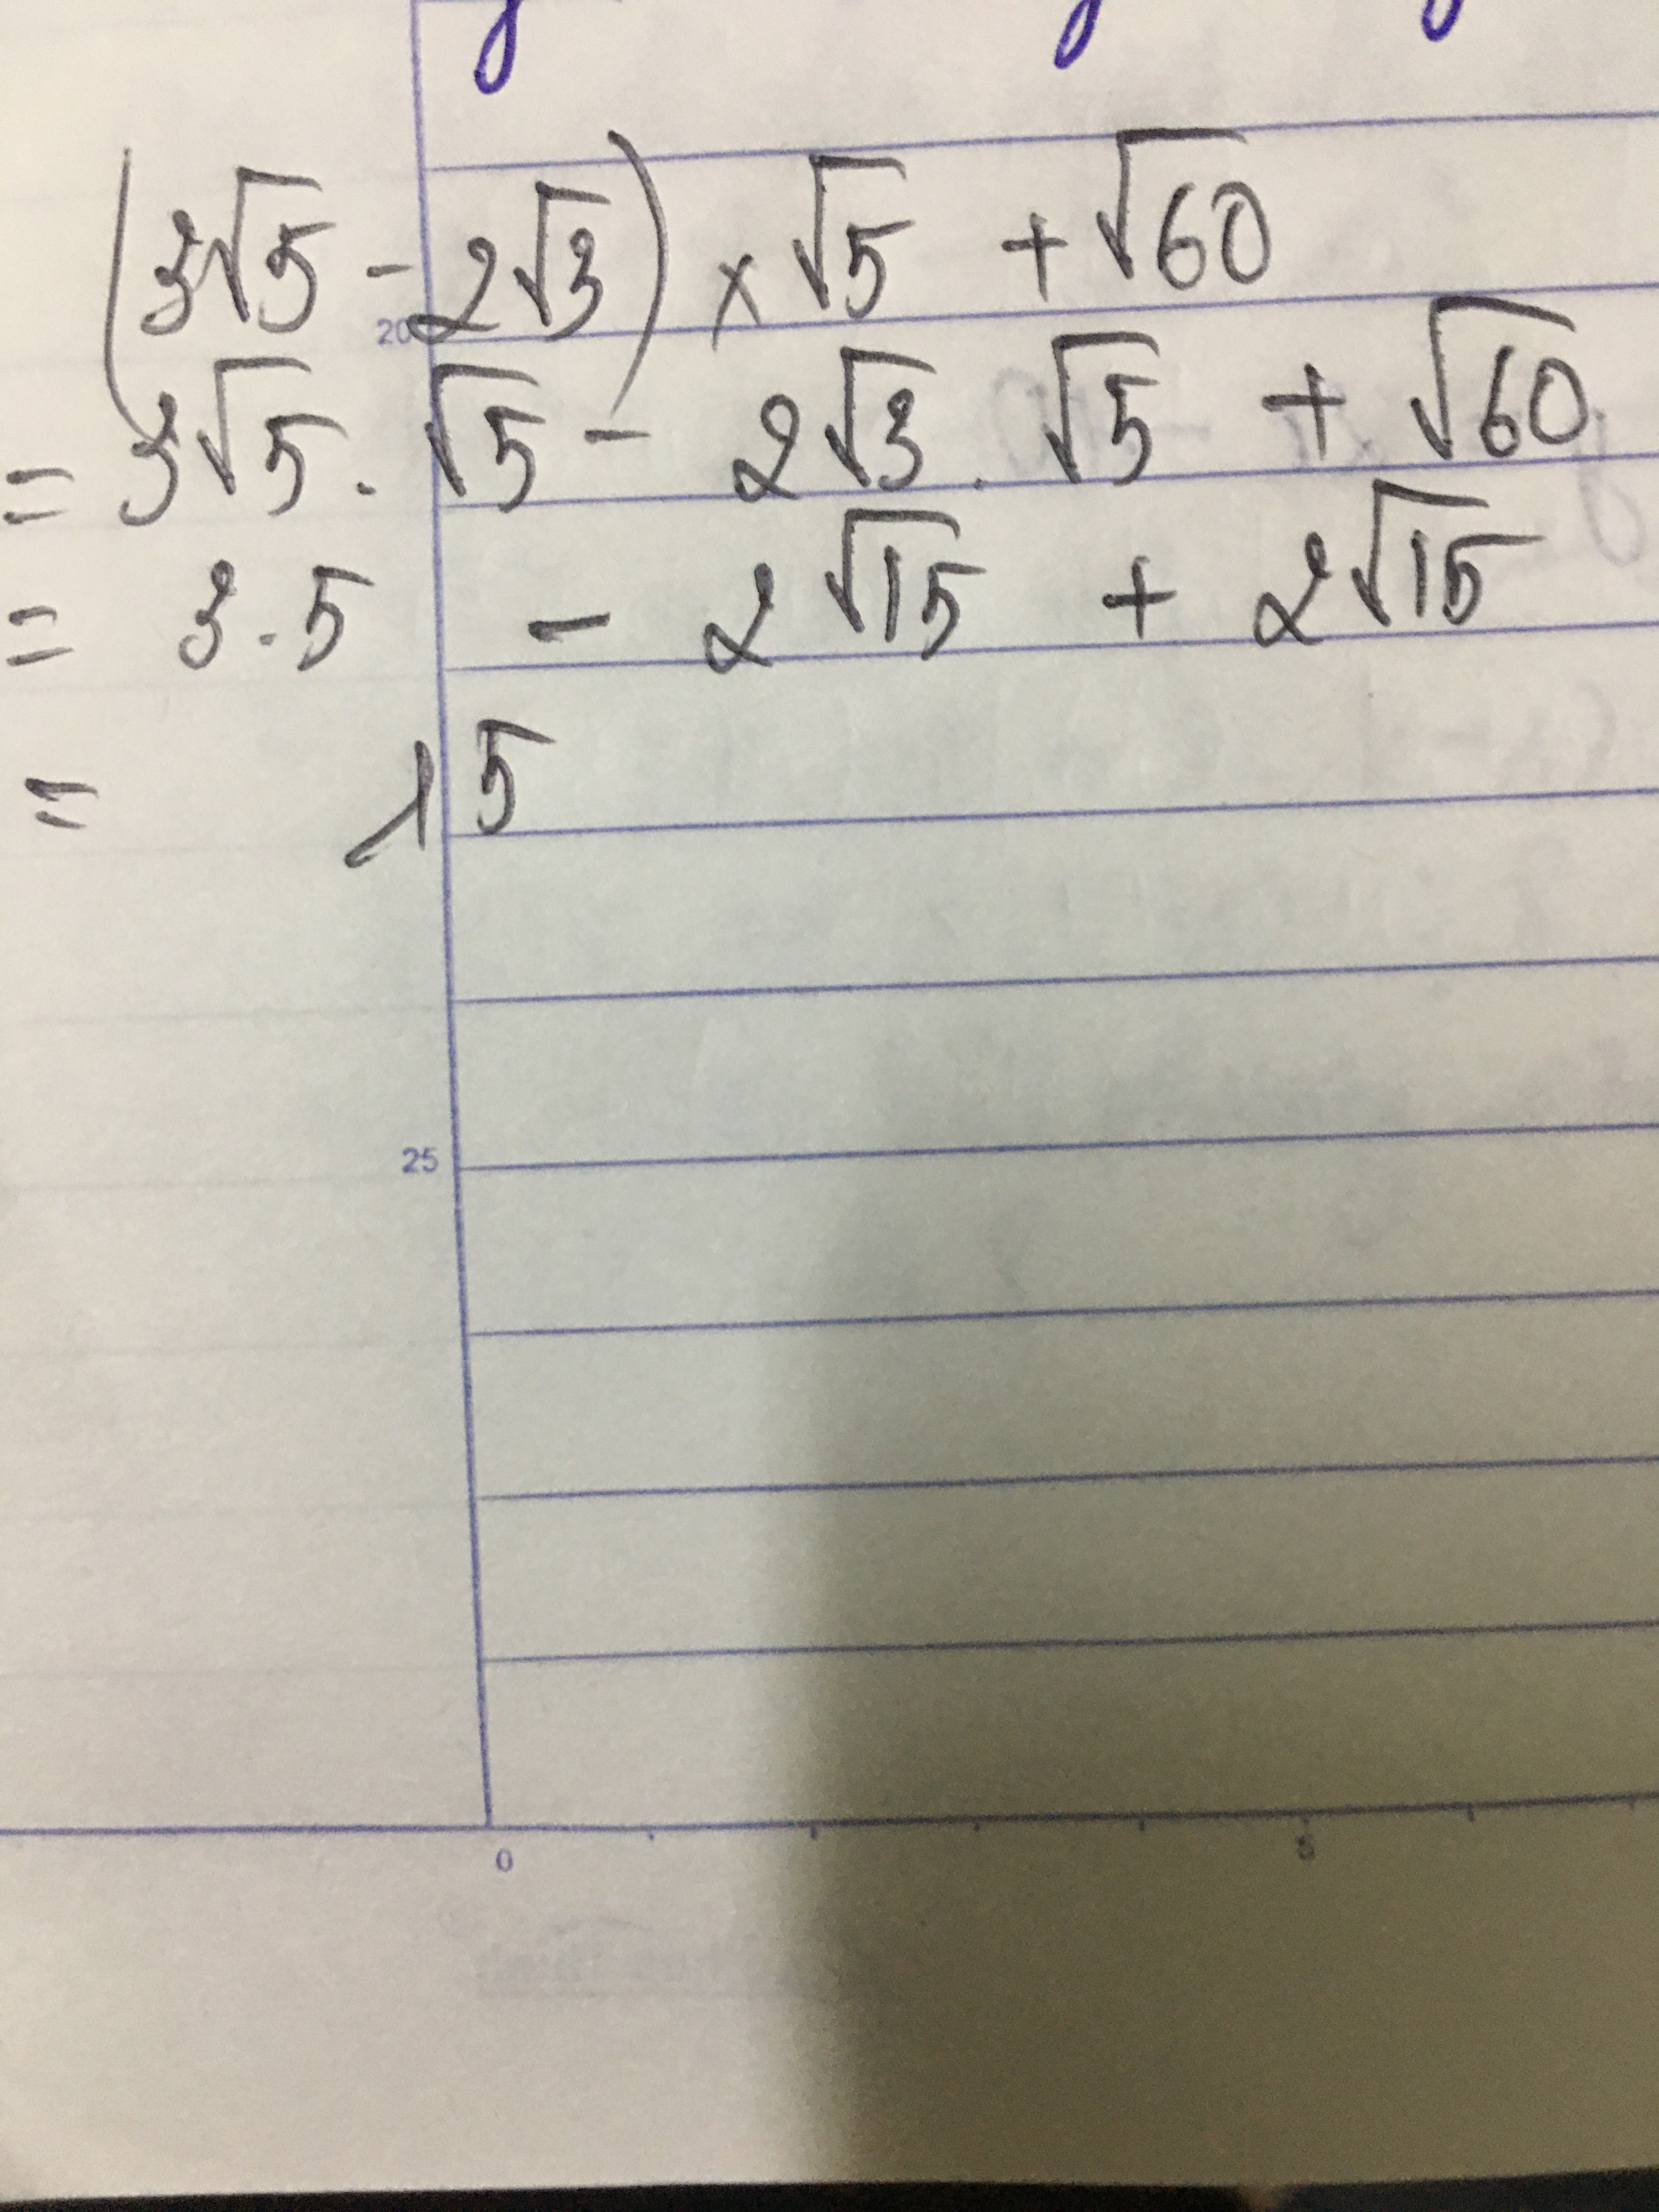 (3√5 - 2√3) × √5 + √60
20
= 3√5 . √5 - 2√3 . √5 + √60
= 3 . 5 - 2√15 + 2√15
= 15
25
0 5